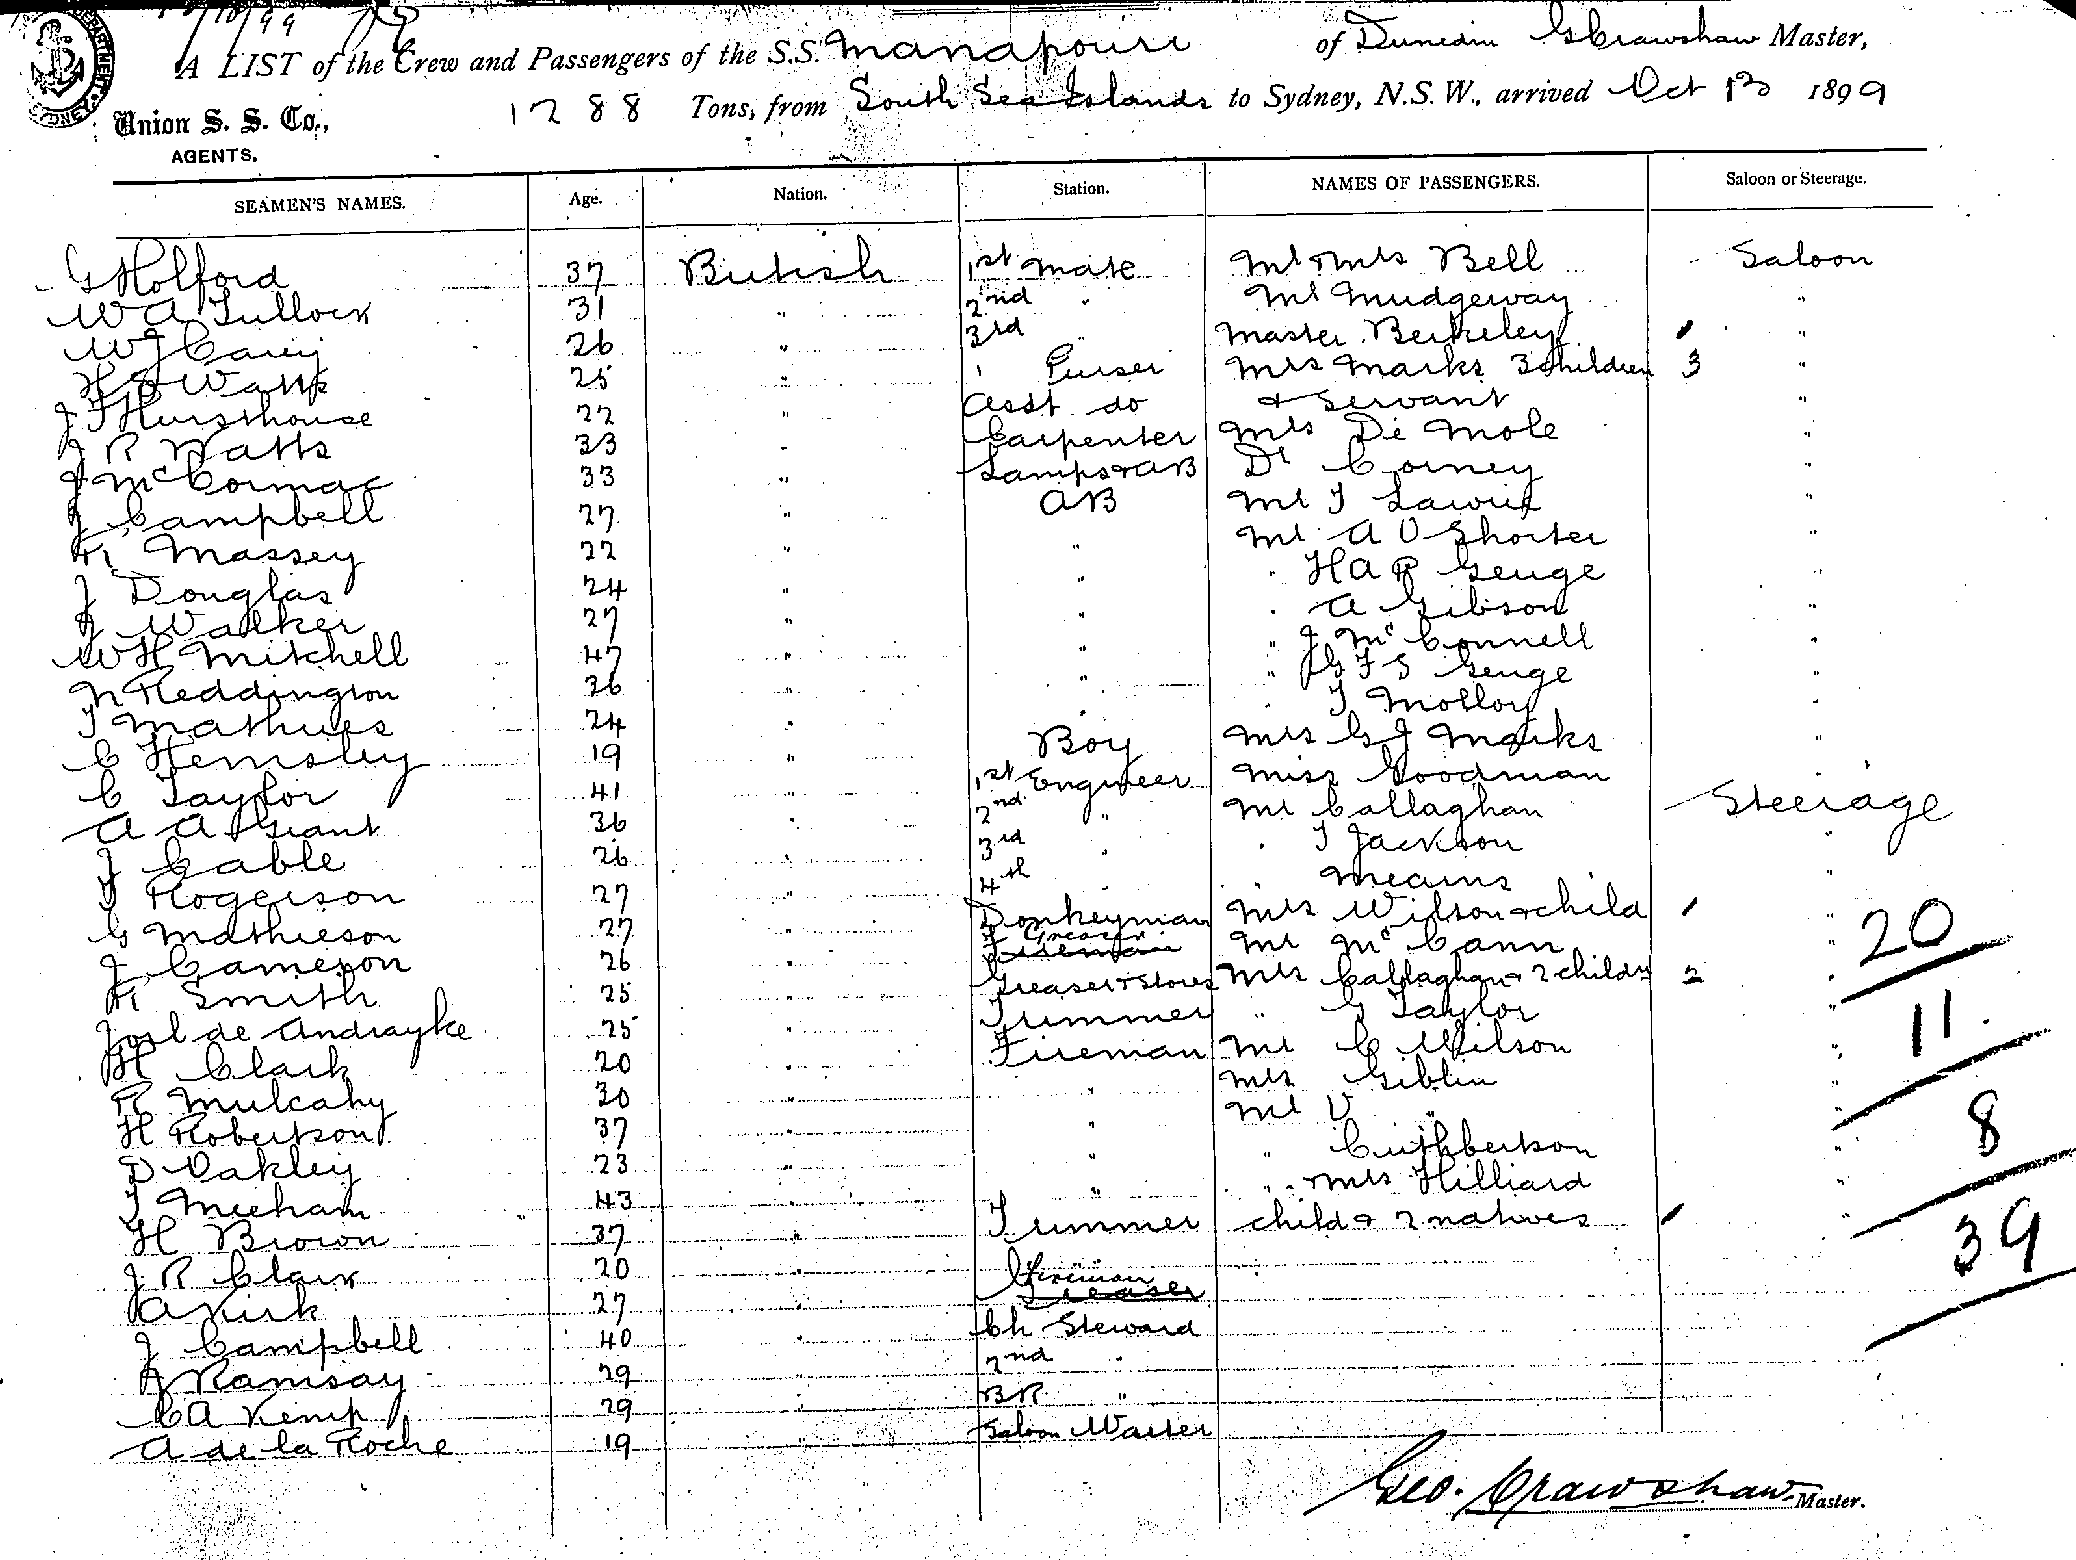 13/10/99
A LIST of the Crew and Passengers of the S.S. Manapouri of Dunedin G Crawshaw Master,
Union S. S. Co., AGENTS. 1288 Tons, from South Sea Islands to Sydney, N.S.W., arrived Oct 13 1899
SEAMEN'S NAMES. Age. Nation. Station. NAMES OF PASSENGERS. Saloon or Steerage.
G Holford 37 British 1st Mate Mr & Mrs Bell Saloon
W A Tullock 31 " 2nd " Mr Mudgeway "
W J Carey 26 " 3rd " Master Berkeley 1 "
H S Watts 25 " Purser Mrs Marks 3 children 3 "
J F Hursthouse 22 " Asst do & Servant "
J R Watts 33 " Carpenter Mrs De Mole "
J McCormac 33 " Lamps & AB Dr Corney "
J Campbell 27 " AB Mr T Lawrie "
R Massey 22 " " Mr A O Shorter "
J Douglas 24 " " " H A R Genge "
A Walker 27 " " " A Gibson "
W H Mitchell 47 " " " J McConnell "
N Reddington 36 " " " G F S Genge "
T Mathews 24 " " " T Molloy "
C Hemsley 19 " Boy Mrs G J Marks "
C Taylor 41 " 1st Engineer Miss Goodman "
A A Grant 36 " 2nd " Mr Callaghan Steerage
J Cable 26 " 3rd " " T Jackson "
T Rogerson 27 " 4th " " Mearns "
G Mathieson 27 " Donkeyman Mrs Wilson & child 1 " 20
J Cameron 26 " Greaser Fireman Mr McCann "
R Smith 25 " Greaser & Stores Mrs Callaghan & 2 childn 2 "
José de Andrayke 25 " Trimmer " G Taylor " 11
H Clark 20 " Fireman Mr C Wilson "
R Mulcahy 30 " " Mrs Giblin "
H Robertson 37 " " Mr V " " 8
D Oakley 23 " " " Cuthbertson "
T Meeham 43 " " " & Mrs Hilliard "
H Brown 37 " Trimmer child & 2 natives 1 " 39
J R Clark 20 "
A Kirk 27 " Fireman Greaser
J Campbell 40 " Ch Steward
A Ramsay 29 " 2nd "
C A Kemp 29 " BR "
A de la Roche 19 " Saloon Waiter
Geo. Crawshaw Master.